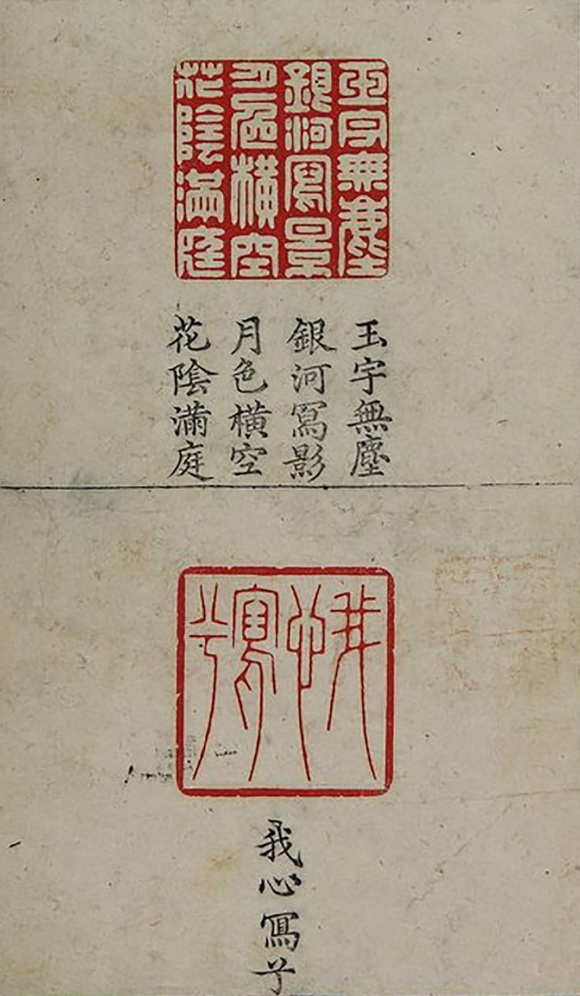 玉宇無塵
銀河寫景
月色橫空
花陰滿庭
玉宇無塵
銀河冩影
月色橫空
花陰滿庭
我心寫兮
我心冩兮